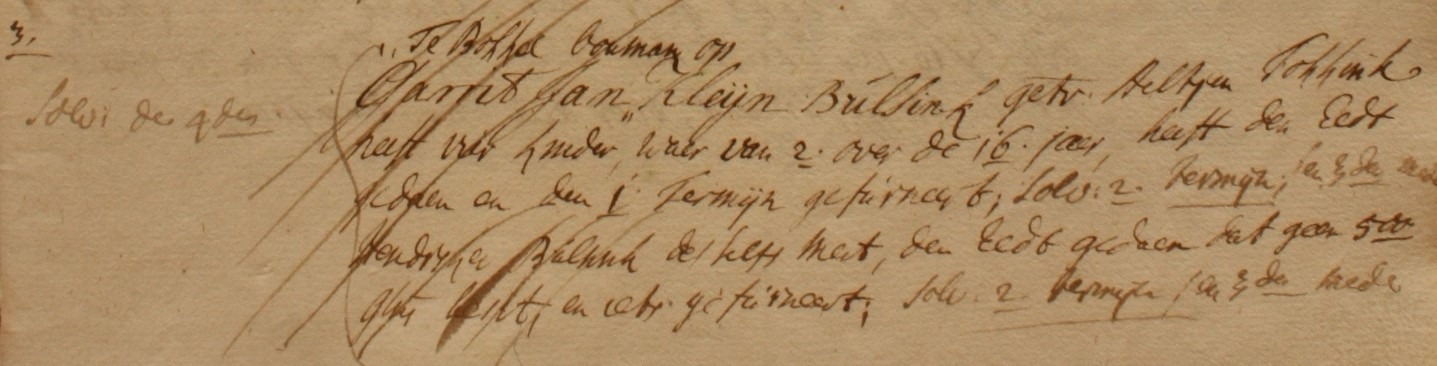 3.
Te Bokkel bouman op
Solv: de 4den
Garrit Jan Kleijn Bulsink getr. Aeltjen Fokkink
heeft vier kinder, waer van 2. over de 16. jaer, heeft den Eedt
gedaen en den 1. Termijn gefurneert; Solv: 2. termijn; en 3den mede
Hendrijka Bulsink des selfs Meit, den Eedt gedaen dat geen 500
glns besit, en ietz. gefurneert; Solv: 2. termijn; en 3den mede